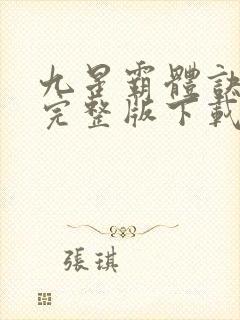 九星霸體訣
完整版下載
張琪